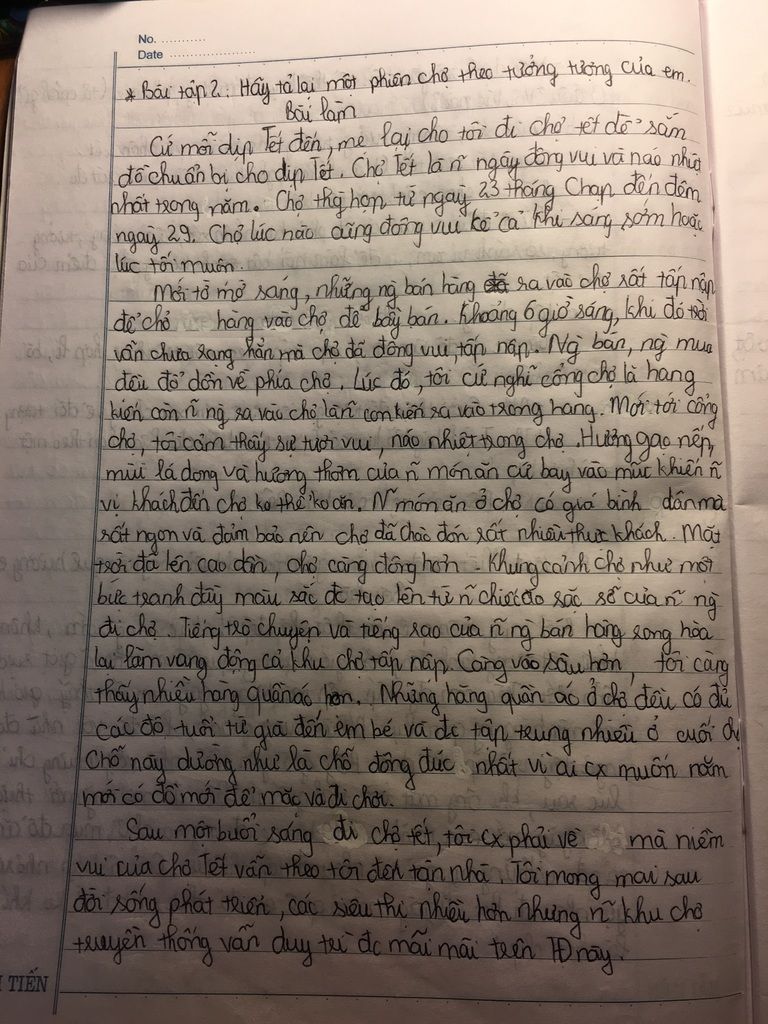 No. ............
Date .......................
* Bài tập 2: Hãy tả lại một phiên chợ theo tưởng tượng của em.
Bài làm
Cứ mỗi dịp Tết đến, mẹ lại cho tôi đi chợ tết để sắm
đồ chuẩn bị cho dịp Tết. Chợ Tết là ñ ngày đông vui và náo nhiệt
nhất trong năm. Chợ thg họp từ ngày 23 tháng Chạp đến đêm
ngày 29. Chợ lúc nào cũng đông vui kể cả khi sáng sớm hoặc
lúc tối muộn.
Mới tờ mờ sáng, những ng bán hàng đã ra vào chợ rất tấp nập
để chở hàng vào chợ để bày bán. Khoảng 6 giờ sáng, khi đó trời
vẫn chưa rạng hẳn mà chợ đã đông vui, tấp nập. Ng bán, ng mua
đều đổ dồn về phía chợ. Lúc đó, tôi cứ nghĩ cổng chợ là hang
kiến còn ñ ng ra vào chợ là ñ con kiến ra vào trong hang. Mới tới cổng
chợ, tôi cảm thấy sự tươi vui, náo nhiệt trong chợ. Hương gạo nếp,
mùi lá dong và hương thơm của ñ món ăn cứ bay vào mũi khiến ñ
vị khách đến chợ ko thể ko ăn. Ñ món ăn ở chợ có giá bình dân mà
rất ngon và đảm bảo nên chợ đã chào đón rất nhiều thực khách. Mặt
trời đã lên cao dần, chợ càng đông hơn. Khung cảnh chợ như một
bức tranh đầy màu sắc đc tạo lên từ ñ chiếc áo sặc sỡ của ñ ng
đi chợ. Tiếng trò chuyện và tiếng rao của ñ ng bán hàng song hòa
lại làm vang động cả khu chợ tấp nập. Càng vào sâu hơn, tôi càng
thấy nhiều hàng quần áo hơn. Những hàng quần áo ở chợ đều có đủ
các độ tuổi từ già đến em bé và đc tập trung nhiều ở cuối chợ
Chỗ này dường như là chỗ đông đúc nhất vì ai cx muốn năm
mới có đồ mới để mặc và đi chơi.
Sau một buổi sáng đi chợ tết, tôi cx phải về mà niềm
vui của chợ Tết vẫn theo tôi đến tận nhà. Tôi mong mai sau
đời sống phát triển, các siêu thị nhiều hơn nhưng ñ khu chợ
truyền thống vẫn duy trì đc mãi mãi trên TĐ này.
TIẾN